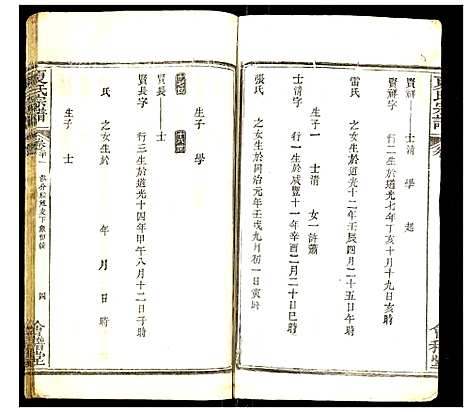 夏氏宗譜
賢祥——士清　學　起
賢祥字　行二生於道光七年丁亥十月十九日亥時
雷氏　之女生於道光十二年壬辰四月二十五日午時
生子一　士清　女一許蕭
士清字　行一生於咸豐十一年辛酉二月二十日巳時
張氏　之女生於同治元年壬戌九月初一日寅時
生子　學
賢長——士
賢長字　行三生於道光十四年甲午八月十二日子時
氏　之女生於　年　月　日　時
生子　士
夏氏宗譜